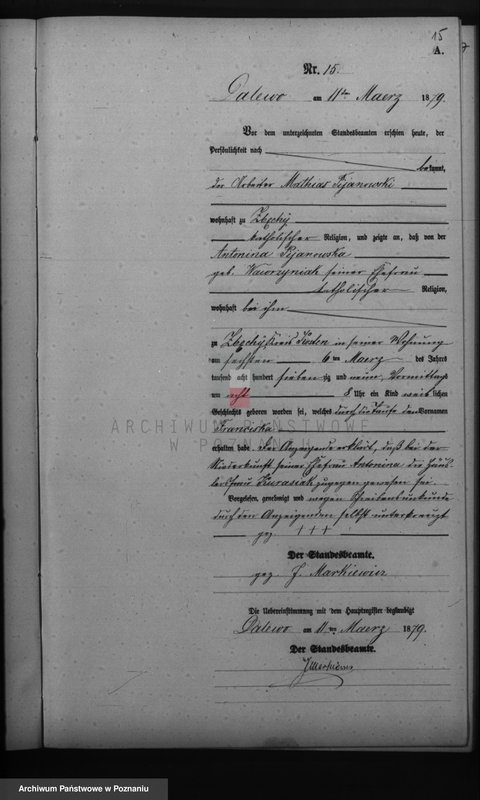 15
A.
Nr. 15.
Dalewo am 11ten Maerz 1879.
Vor dem unterzeichneten Standesbeamten erschien heute, der
Persönlichkeit nach
bekannt,
der Arbeiter Mathias Pijanowski
wohnhaft zu Zbęchy
katholischer Religion, und zeigte an, daß von der
Antonina Pijanowska
geb. Wawrzyniak seiner Ehefrau
katholischer Religion,
wohnhaft bei ihm
zu Zbęchy Kreis Kosten in seiner Wohnung
am sechsten 6ten Maerz des Jahres
tausend acht hundert siebenzig und neun Vormittags
um acht 8 Uhr ein Kind weiblichen
Geschlechts geboren worden sei, welches durch die Taufe den Vornamen
Franciska
erhalten habe. Der Anzeigende erklärt, daß bei der
Niederkunft seiner Ehefrau Antonina die
Kurasiak zugegen gewesen sei.
Vorgelesen, genehmigt und wegen Schreibensunkunde
durch den Anzeigenden selbst unterkreuzt
gez. +++
Der Standesbeamte.
gez. J. Markiewicz
Die Uebereinstimmung mit dem Hauptregister beglaubigt
Dalewo am 11ten Maerz 1879.
Der Standesbeamte.
JMarkiewicz
ARCHIWUM PAŃSTWOWE
W POZNANIU
Archiwum Państwowe w Poznaniu